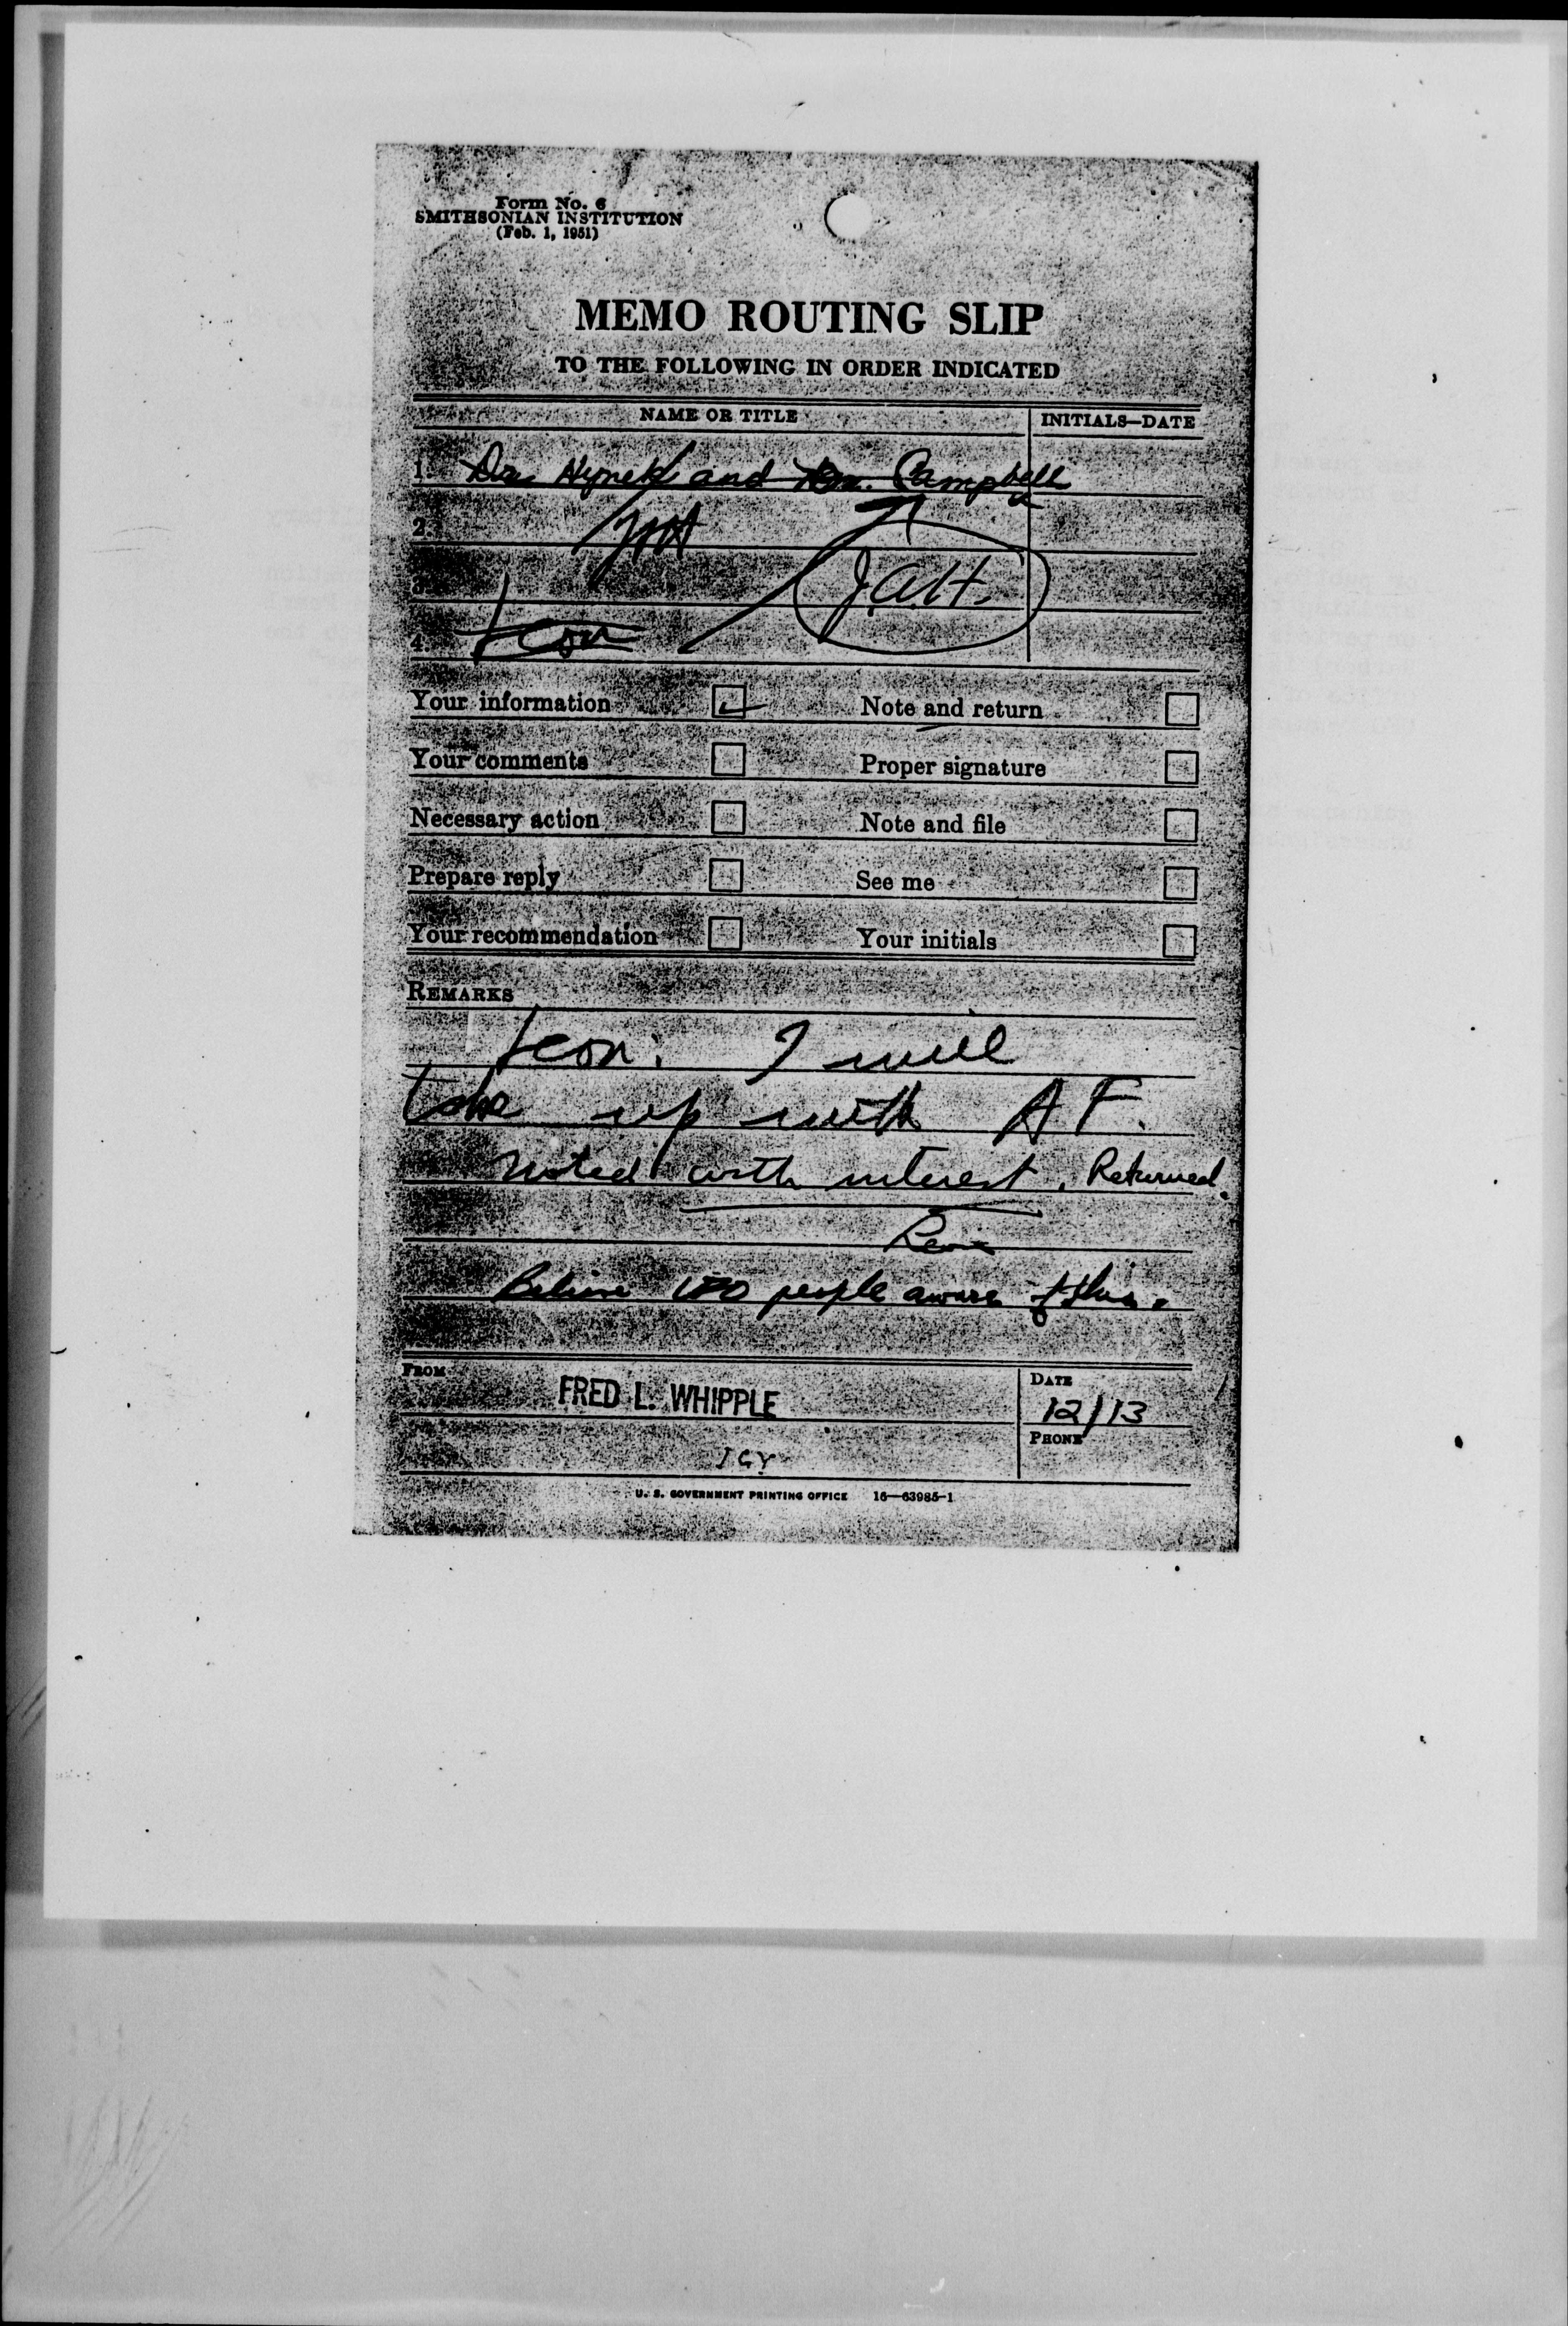 Form No. 6
SMITHSONIAN INSTITUTION
(Feb. 1, 1951)
MEMO ROUTING SLIP
TO THE FOLLOWING IN ORDER INDICATED
NAME OR TITLE INITIALS—DATE
1. Dr. Hynek and Dr. Campbell
2.
3. J.A.H.
4. Leon
Your information Note and return
Your comments Proper signature
Necessary action Note and file
Prepare reply See me
Your recommendation Your initials
REMARKS
Leon: I will
take up with AF.
Noted with interest. Returned.
Leon
Believe people aware of this.
FROM FRED L. WHIPPLE DATE
12/13
PHONE
IGY
U. S. GOVERNMENT PRINTING OFFICE 16—63985-1